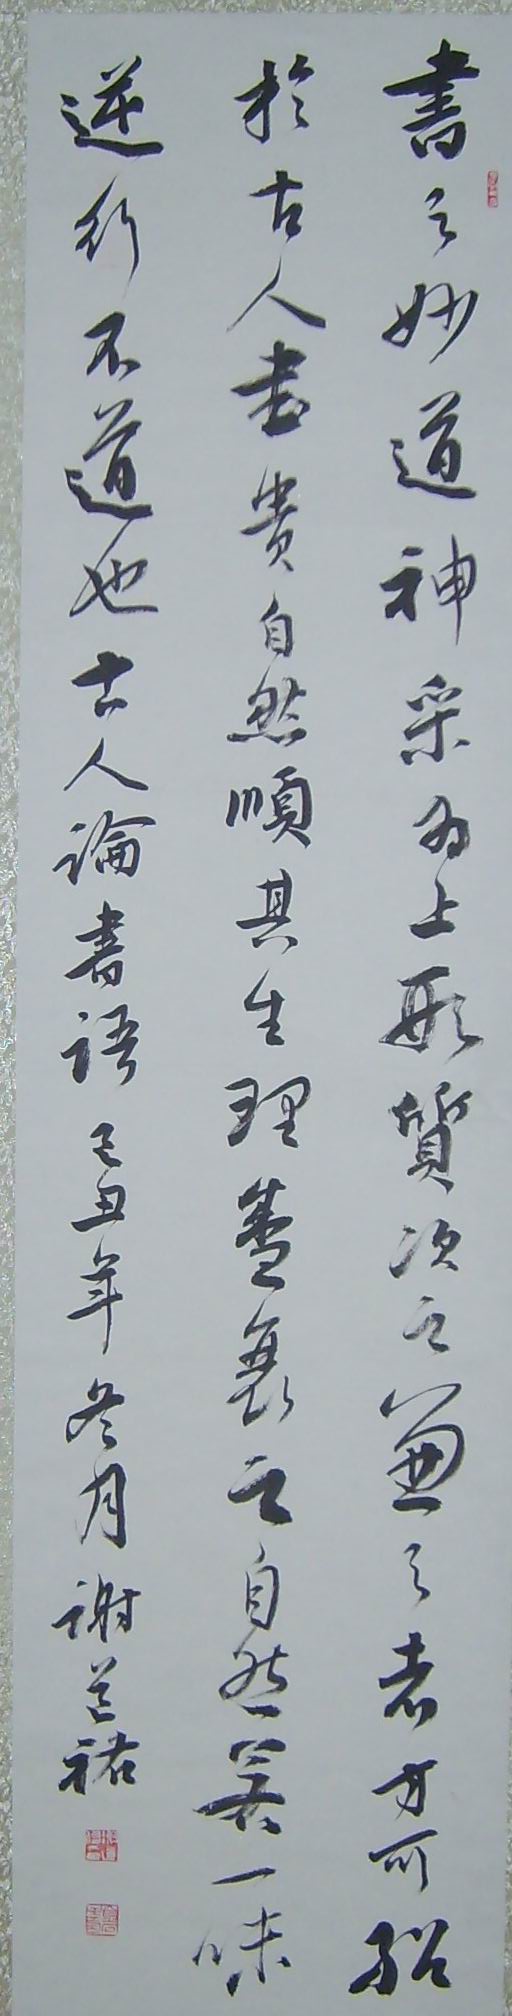 書之妙道神采為上形質次之兼之者方可紹
於古人書貴自然順其生理盡義之自然 一味
逆行不道也古人論書語己丑年冬月謝 祐